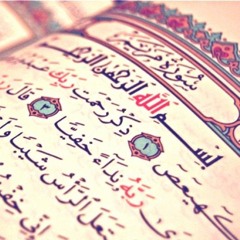 سُورَةُ مَرْيَمَ
بِسْمِ اللَّهِ الرَّحْمَٰنِ الرَّحِيمِ
كهيعص ١ ذِكْرُ رَحْمَتِ رَبِّكَ
رَبَّهُ نِدَاءً خَفِيًّا ٣ قَالَ
الرَّأْسُ شَيْبًا
خِفْتُ